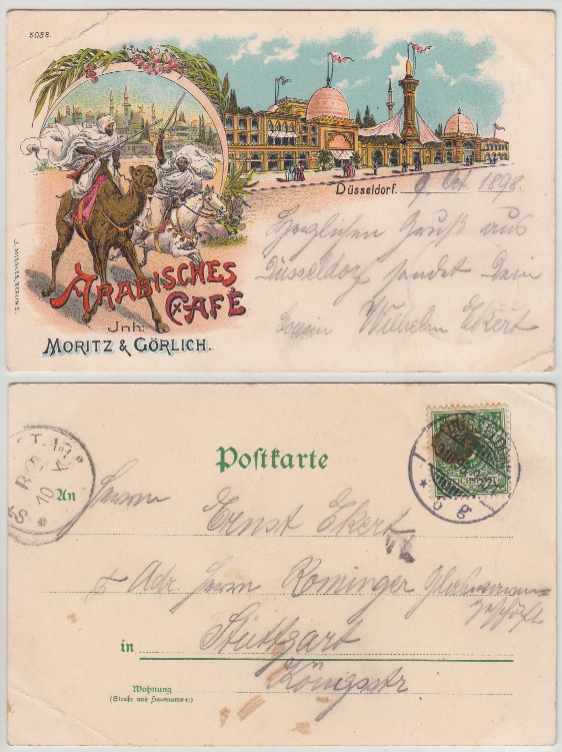 5088.
Düsseldorf. 9. Oct. 1898.
Herzlichen Gruß aus
Düsseldorf sendet Dein
Cousin Wilhelm Ekert
ARABISCHES
CAFÉ
Inh:
MORITZ & GÖRLICH.
Postkarte
An Herrn
Ernst Ekert
Adr Herrn Rominger
geschäft
in Stuttgart
Königstr
Wohnung
(Straße und Hausnummer)